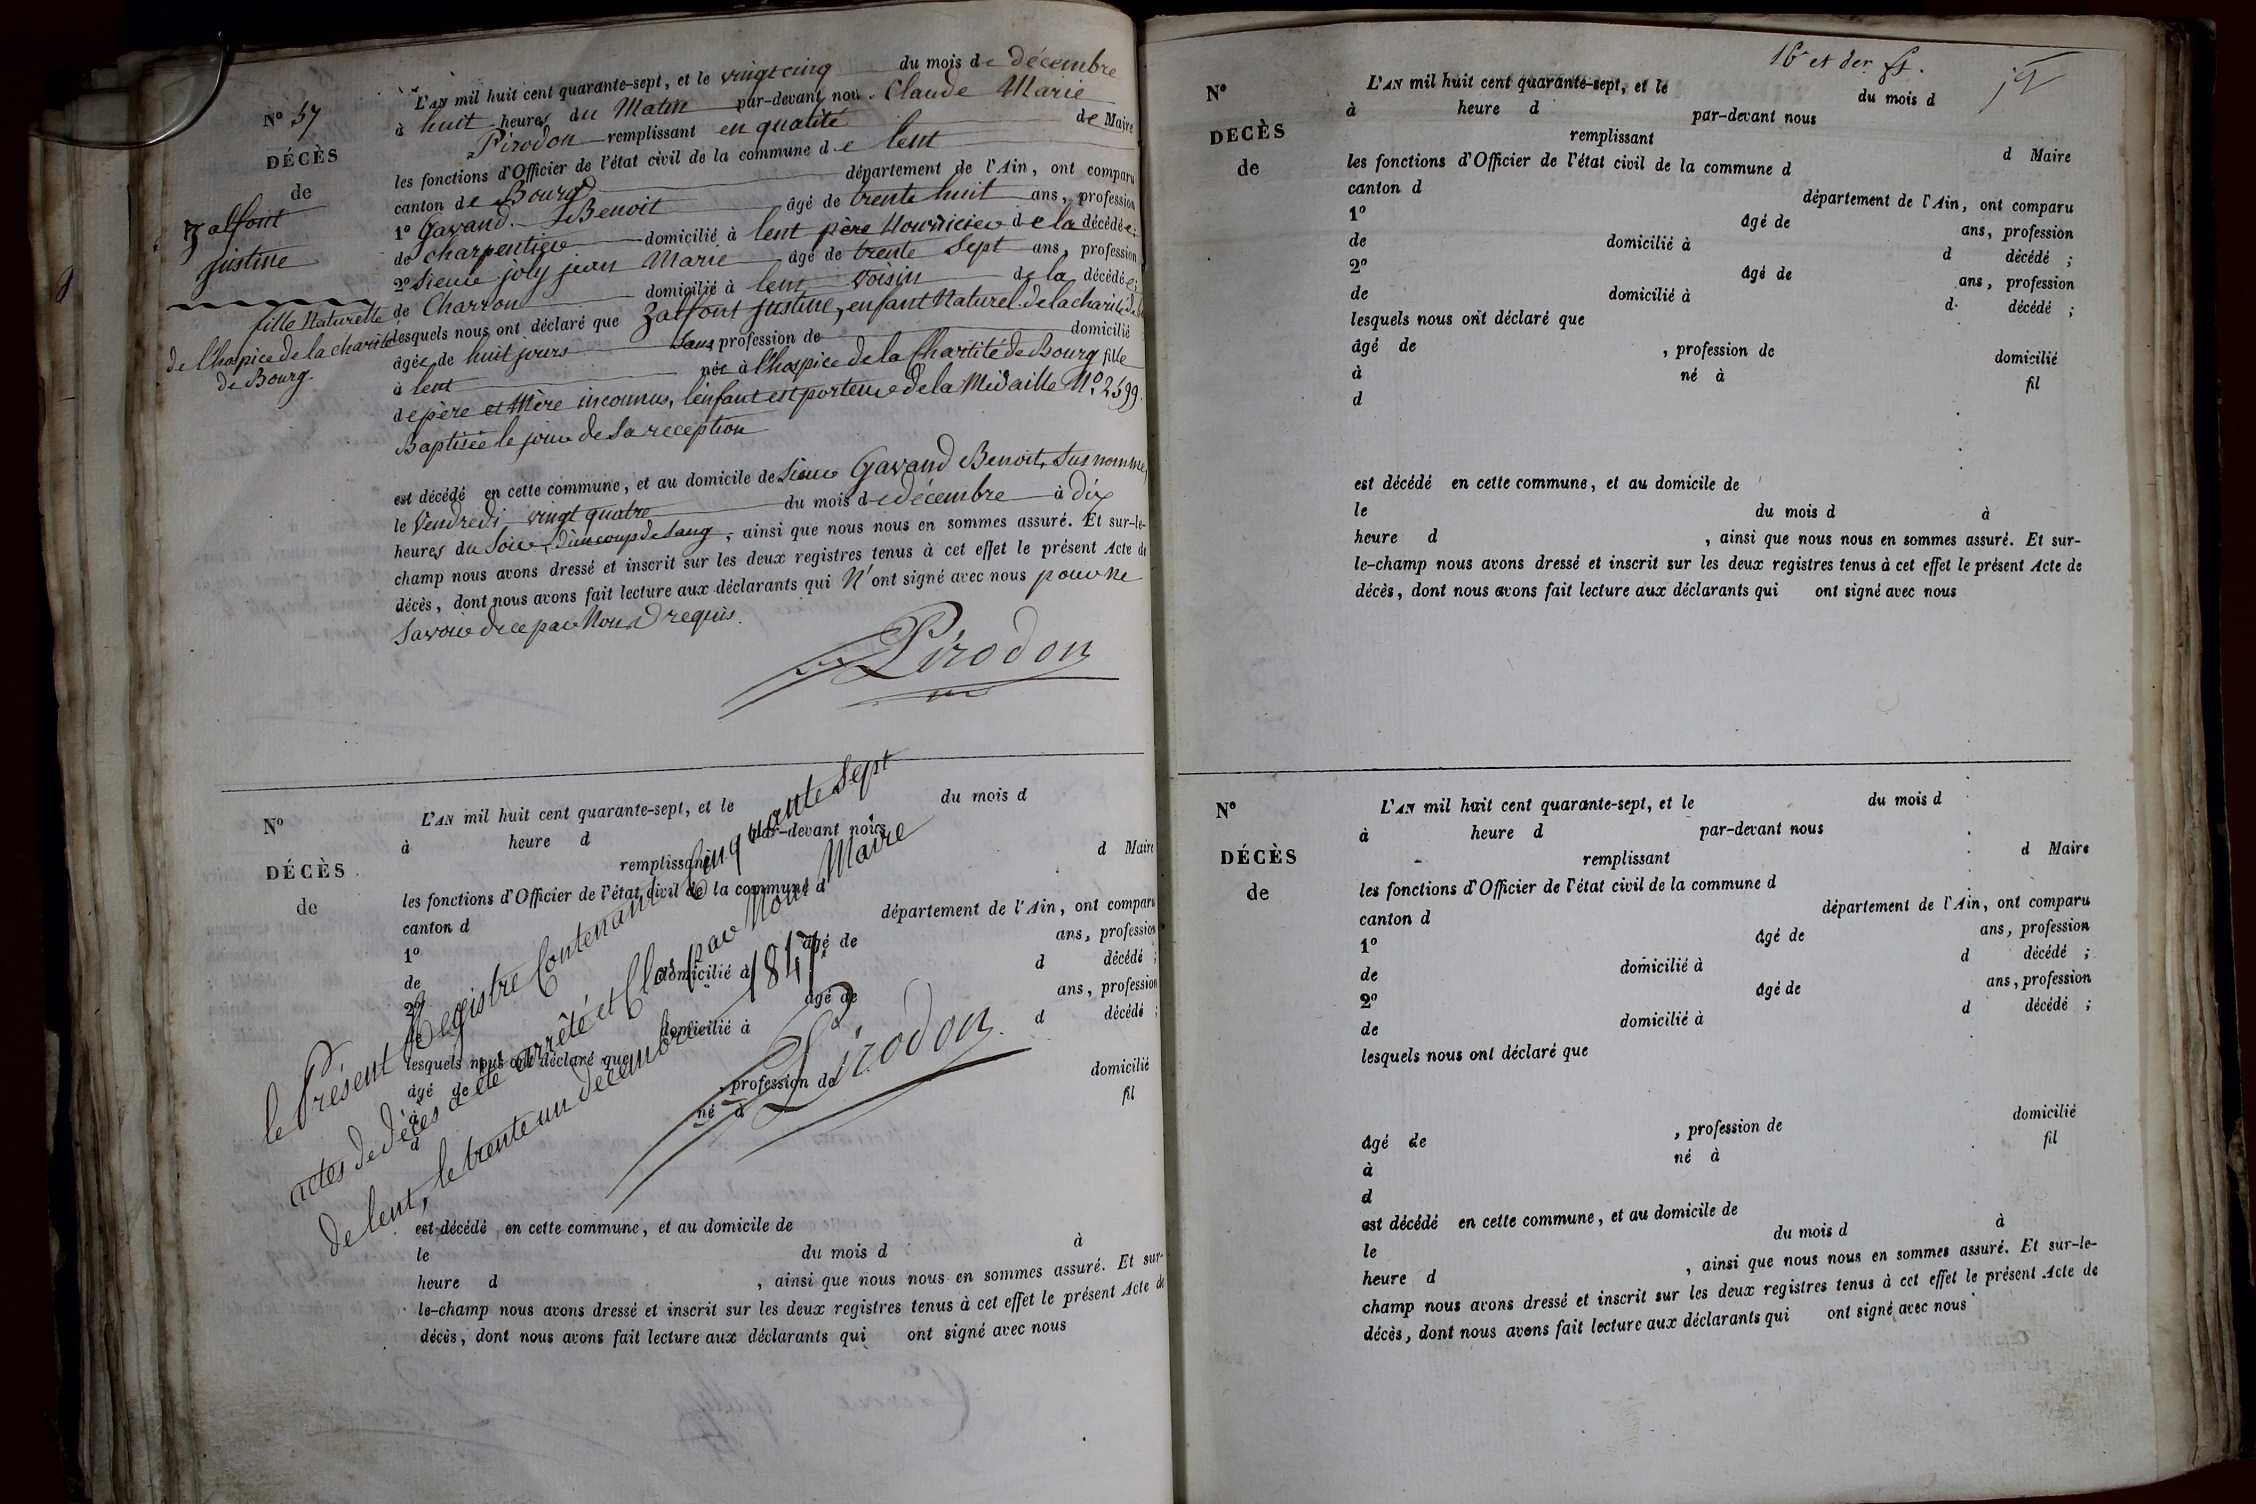 N° 57
DÉCÈS
de
Zalfont
Justine
fille Naturelle
de l'hospice de la charité
de Bourg.
L'AN mil huit cent quarante-sept, et le vingt cinq du mois de décembre
à huit heures du Matin par-devant nous Claude Marie
Pirodon remplissant en qualité de Maire
les fonctions d'Officier de l'état civil de la commune de lent
canton de Bourg département de l'Ain, ont comparu
1° Gavand Benoit âgé de trente huit ans, profession
de charpentier domicilié à lent père Nourricier de la décédée;
2° Sieur joly jean Marie âgé de trente Sept ans, profession
de Charron domicilié à lent voisin de la décédée;
lesquels nous ont déclaré que Zalfont Justine, enfant Naturel de la charité
âgée de huit jours Sans profession de domicilié
à lent née à l'hospice de la Chartité de Bourg fille
de père et Mère inconnus, l'enfant est porteur de la Médaille N° 2599.
Baptisée le jour de Sa reception
est décédé en cette commune, et au domicile de Sieur Gavand Benoit, Susnommé,
le Vendredi vingt quatre du mois de décembre à dix
heures du Soir, D'un coup de Sang, ainsi que nous nous en sommes assuré. Et sur-le-
champ nous avons dressé et inscrit sur les deux registres tenus à cet effet le présent Acte de
décès, dont nous avons fait lecture aux déclarants qui N'ont signé avec nous pour ne
Savoir de ce par Nous requis.
Pirodon
N°
DÉCÈS
de
L'AN mil huit cent quarante-sept, et le du mois d
à heure d par-devant nous
remplissant d Maire
les fonctions d'Officier de l'état civil de la commune d
canton d département de l'Ain, ont comparu
1° âgé de ans, profession
de domicilié à d décédé ;
2° âgé de ans, profession
de domicilié à d décédé ;
lesquels nous ont déclaré que
âgé de , profession de domicilié
à né à fil
d
le Présent Registre Contenant Cinquante Sept
actes de décès a été arrêté et Clos par Nous Maire
de lent, le trente un décembre 1847.
Pirodon
est décédé en cette commune, et au domicile de
le du mois d à
heure d , ainsi que nous nous en sommes assuré. Et sur-
le-champ nous avons dressé et inscrit sur les deux registres tenus à cet effet le présent Acte de
décès, dont nous avons fait lecture aux déclarants qui ont signé avec nous
16e et der ft.
N°
DECÈS
de
L'AN mil huit cent quarante-sept, et le du mois d
à heure d par-devant nous
remplissant d Maire
les fonctions d'Officier de l'état civil de la commune d
canton d département de l'Ain, ont comparu
1° âgé de ans, profession
de domicilié à d décédé ;
2° âgé de ans, profession
de domicilié à d décédé ;
lesquels nous ont déclaré que
âgé de , profession de domicilié
à né à fil
d
est décédé en cette commune, et au domicile de
le du mois d à
heure d , ainsi que nous nous en sommes assuré. Et sur-
le-champ nous avons dressé et inscrit sur les deux registres tenus à cet effet le présent Acte de
décès, dont nous avons fait lecture aux déclarants qui ont signé avec nous
N°
DÉCÈS
de
L'AN mil huit cent quarante-sept, et le du mois d
à heure d par-devant nous
remplissant d Maire
les fonctions d'Officier de l'état civil de la commune d
canton d département de l'Ain, ont comparu
1° âgé de ans, profession
de domicilié à d décédé ;
2° âgé de ans, profession
de domicilié à d décédé ;
lesquels nous ont déclaré que
âgé de , profession de domicilié
à né à fil
d
est décédé en cette commune, et au domicile de
le du mois d à
heure d , ainsi que nous nous en sommes assuré. Et sur-le-
champ nous avons dressé et inscrit sur les deux registres tenus à cet effet le présent Acte de
décès, dont nous avons fait lecture aux déclarants qui ont signé avec nous